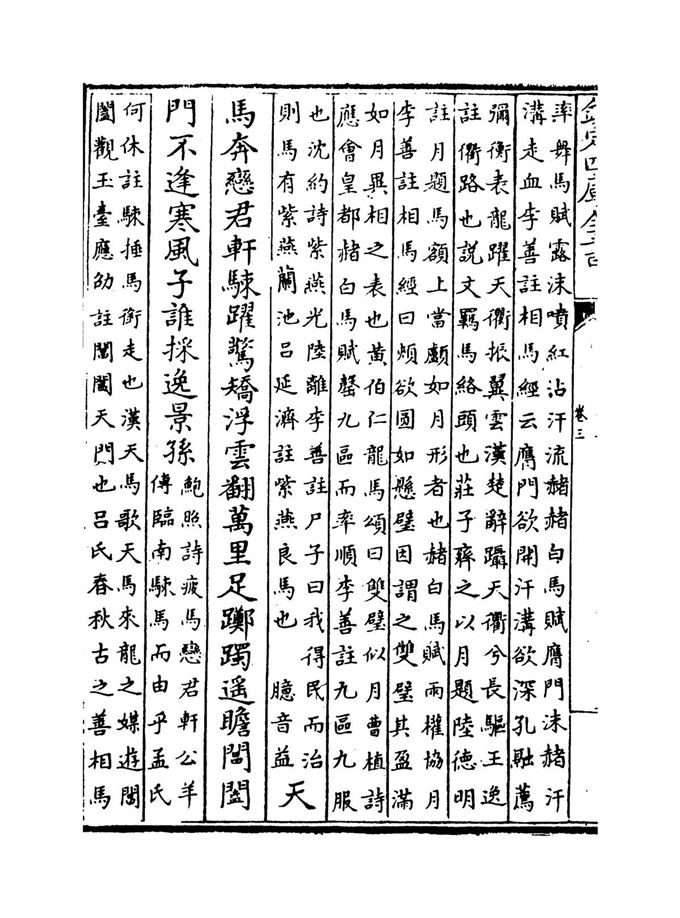 欽定四庫全書
卷三
率舞馬賦露沫噴紅沾汗流赭赭白馬賦膺門沫赭汗
溝走血李善註相馬經云膺門欲開汗溝欲深孔融薦
彌衡表龍躍天衢振翼雲漢楚辭躡天衢兮長驅王逸
註衢路也説文羈馬絡頭也莊子齊之以月題陸德明
註月題馬額上當顱如月形者也赭白馬賦兩權協月
李善註相馬經曰頰欲圓如懸璧因謂之雙璧其盈滿
如月異相之表也黄伯仁龍馬頌曰雙璧似月曹植詩
應會皇都赭白馬賦罄九區而率順李善註九區九服
也沈約詩紫燕光陸離李善註尸子曰我得民而治
則馬有紫燕蘭池吕延濟註紫燕良馬也　　臆音益
天
馬奔戀君軒駷躍驚矯浮雲翻萬里足躑躅遥瞻閶闔
門不逢寒風子誰採逸景孫
鮑照詩疲馬戀君軒公羊
傳臨南駷馬而由乎孟氏
何休註駷捶馬銜走也漢天馬歌天馬來龍之媒遊閶
闔觀玉臺應劭註閶闔天門也吕氏春秋古之善相馬